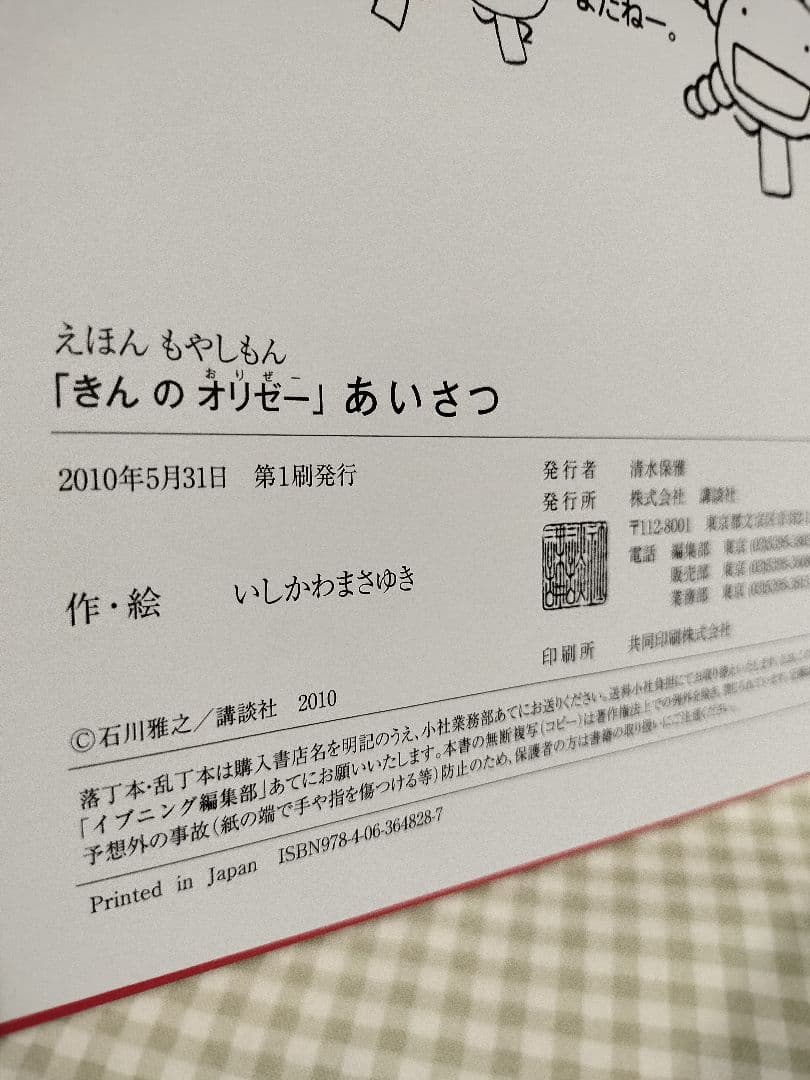 またねー。
えほん もやしもん
おりぜー
「きん の オリゼー」 あいさつ
2010年5月31日 第1刷発行
発行者 清水保雅
発行所 株式会社 講談社
〒112-8001 東京都文京区音羽2-1
電話 編集部 東京
販売部 東京
業務部 東京
印刷所 共同印刷株式会社
作・絵 いしかわまさゆき
©石川雅之／講談社 2010
落丁本・乱丁本は購入書店名を明記のうえ、小社業務部あてにお送りください。送料小社負担にてお取り替えいたします。なお、この
「イブニング編集部」あてにお願いいたします。本書の無断複写（コピー）は著作権法上での例外を除き、禁じられています。
予想外の事故（紙の端で手や指を傷つける等）防止のため、保護者の方は書籍の取り扱いにご注意ください。
Printed in Japan ISBN978-4-06-364828-7